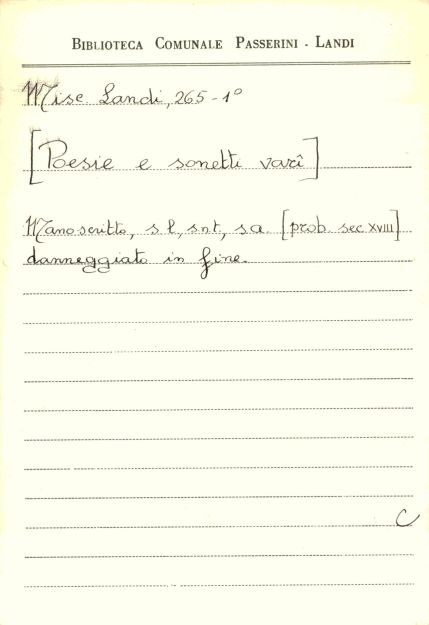 BIBLIOTECA COMUNALE PASSERINI - LANDI
Misc. Landi, 265-1º
[Poesie e sonetti varî]
Manoscritto, s.l., s.n.t., s.a. [prob. sec. XVIII]
danneggiato in fine.
C